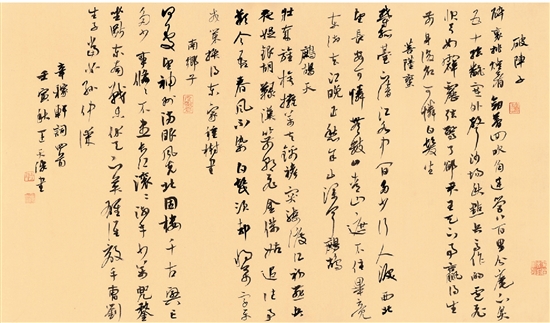 破陣子
醉裏挑燈看劍夢回吹角連營八百里分麾下炙
五十弦翻塞外聲沙場秋點兵馬作的盧飛
快弓如霹靂弦驚了卻君王天下事贏得生
前身後名可憐白髮生
菩薩蠻
鬱孤臺下清江水中間多少行人淚西北
望長安可憐無數山青山遮不住畢竟
東流去江晚正愁余山深聞鷓鴣
鷓鴣天
壯歲旌旗擁萬夫錦襜突騎渡江初燕兵
夜娖銀胡䩮漢箭朝飛金僕姑追往事
歎今吾春風不染白髭鬚卻將萬字平
戎策換得東家種樹書
南鄉子
何處望神州滿眼風光北固樓千古興亡
多少事悠悠不盡長江滾滾流年少萬兜鍪
坐斷東南戰未休天下英雄誰敵手曹劉
生子當如孫仲謀
辛稼軒詞四首
壬寅秋書